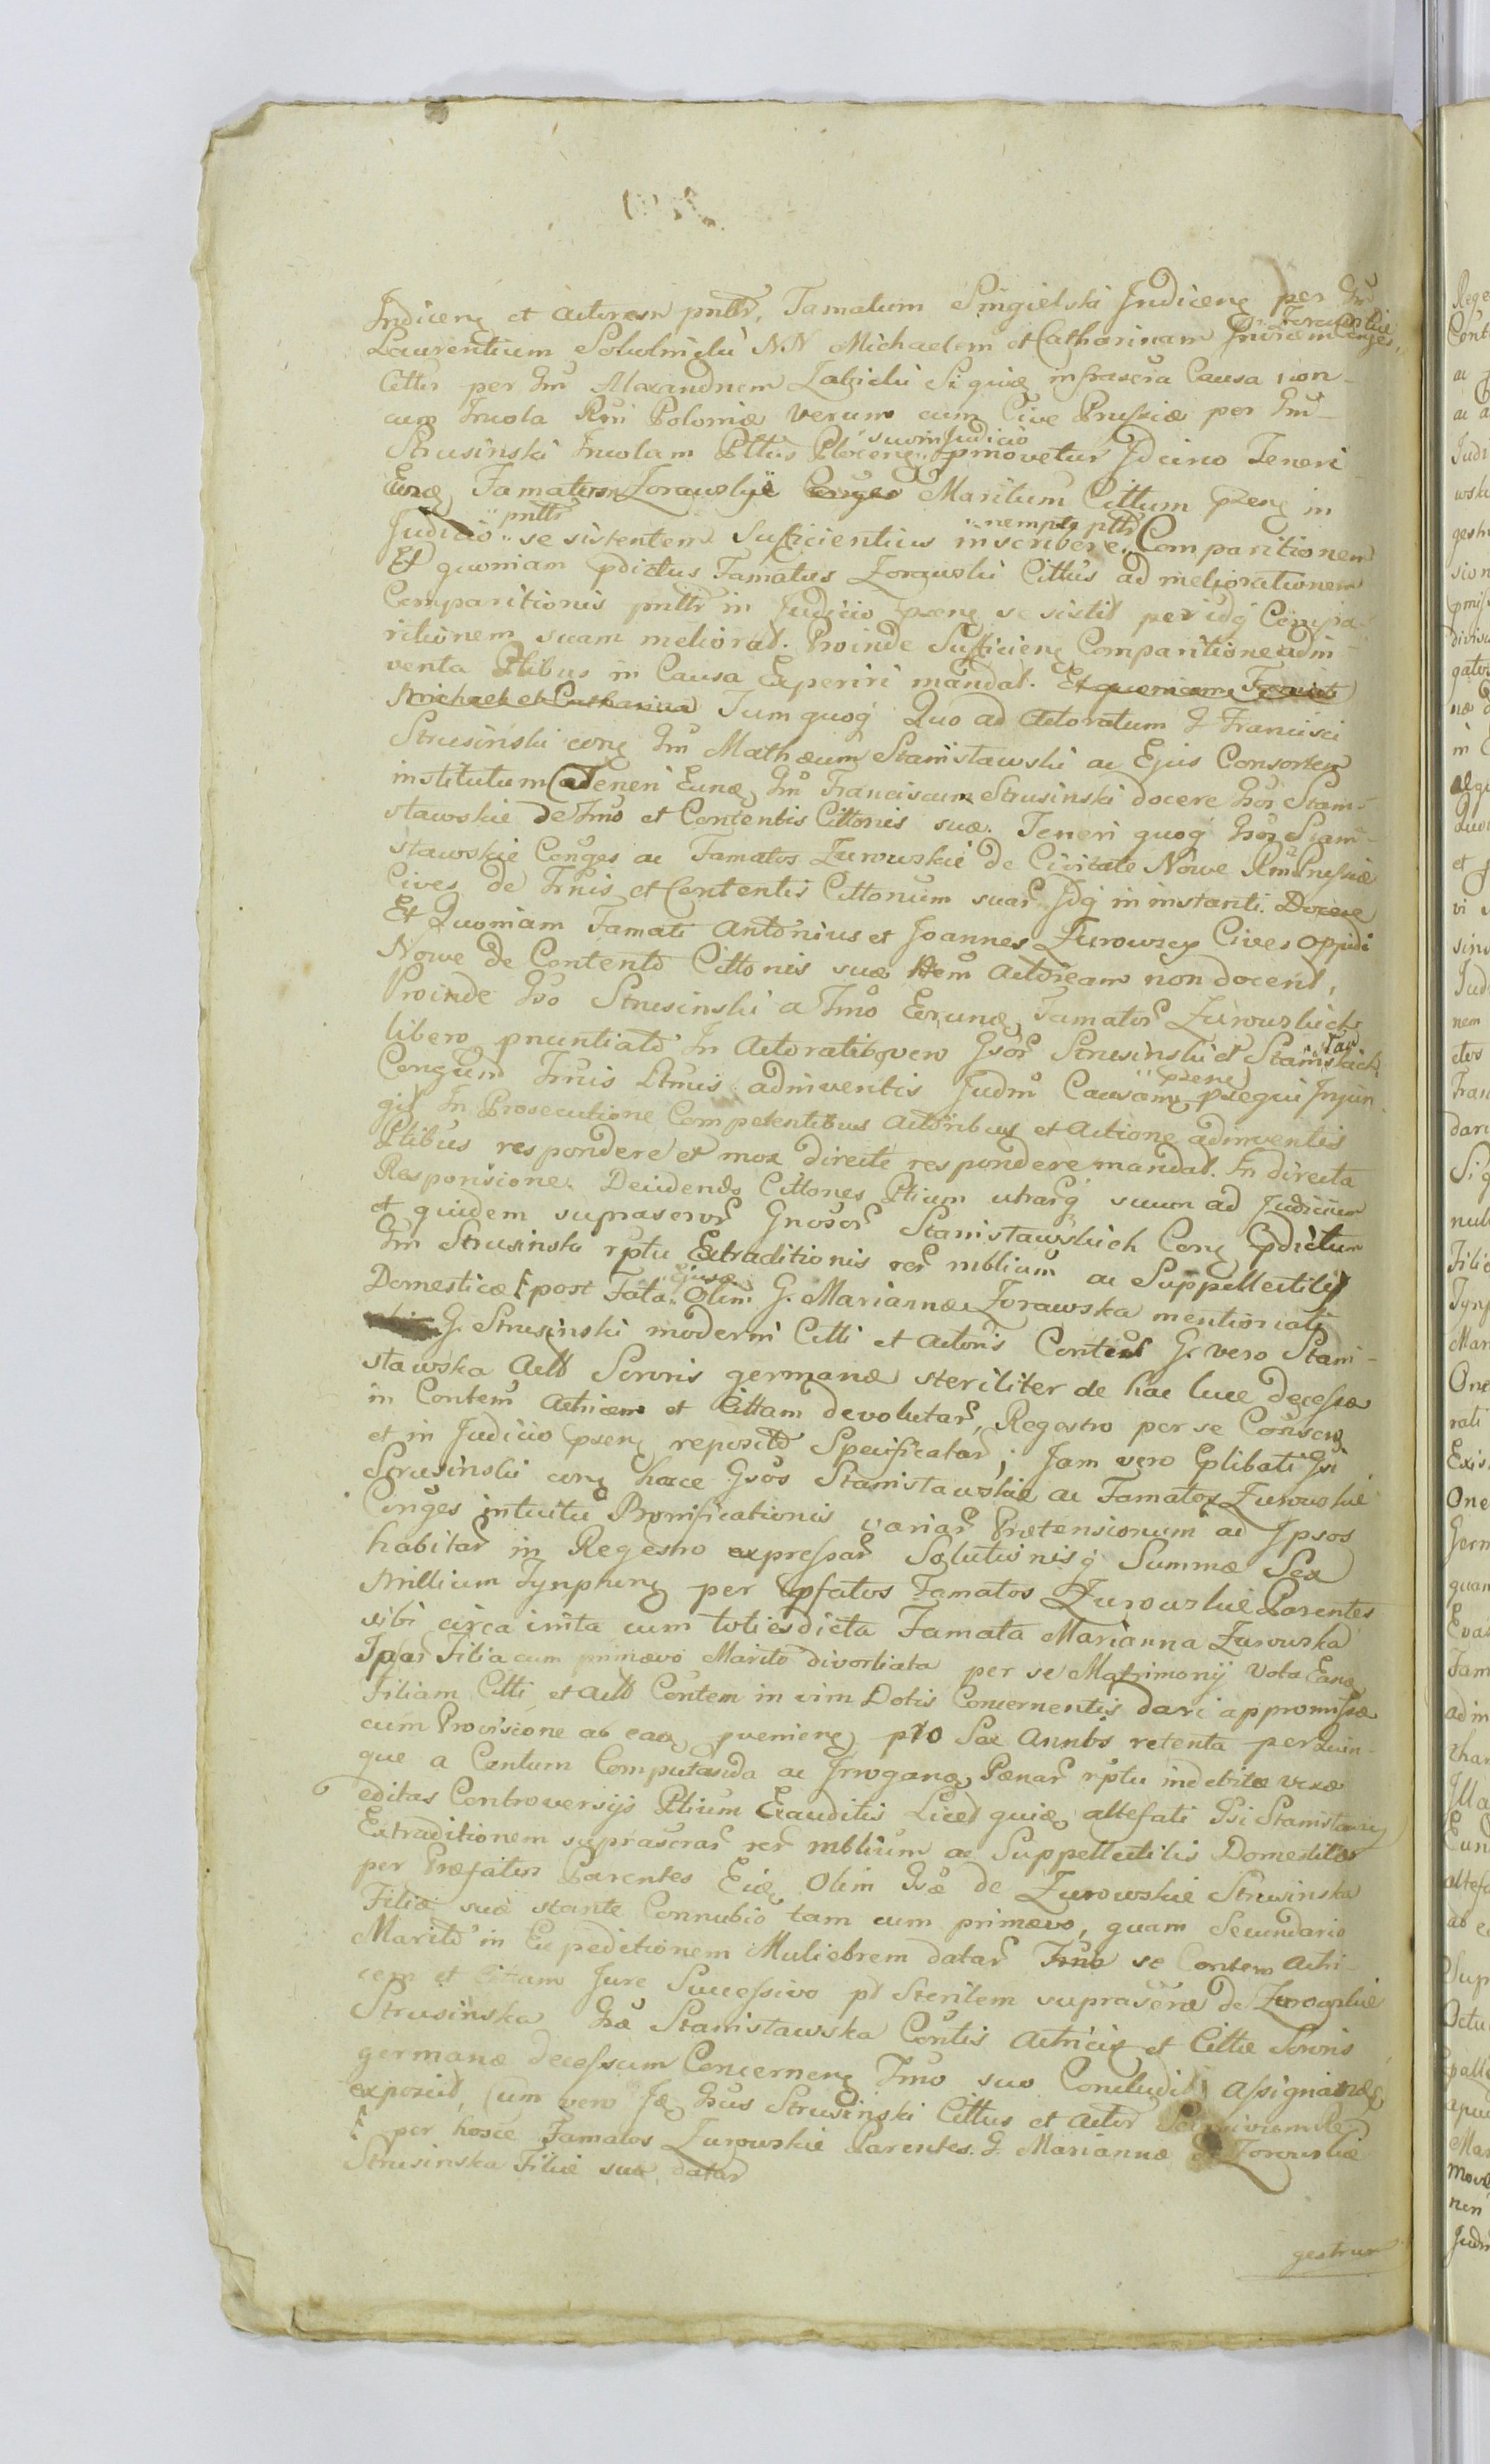 Judiceng et Actorem pnttr, Famatum Smigielski Judiceng per Gm
Laurentium Sokolnicki NN Michaelem et Catharinam Invicem Conges
Cittis per Gm Alexandrum Zabicki Siquidę infrascra Causa non
cum Incola Rni Poloniæ verum cum Cive Prussiæ per Gm
Strusinski Incolam Pttus suoin Judicio pmovetur Idcirco Teneri
Eunę Famatum Zorawski Maritum Cittum pzenę in
Judicio pnttr se sistentem Sufficientius nempe pttr inscribere Comparitionem
Et quoniam pdictus Famatus Zorawski Cittus ad meliorationem
Comparitionis pnttr in Judicio pzenę se sistit per idq Compa-
ritionem suam meliorat. Proinde Sufficienę Comparitione adin
venta Ptibus in Causa Experiri mandat. Et quoniam
Michael et Catharina Tum quoq Quo ad Actoratum G Francisci
Strusinski conę Gm Mathæum Stanisławski ac Ejus Consortem
institutum Teneri Eunę Gm Franciscum Strusinski docere Gsos Stani-
sławskie de Tmo et Contentis Cittonis suæ. Teneri quoq Gsos Stani-
sławskie Conges ac Famatos Zurowskie de Civitate Nowe Rni Prussiæ
Cives de Tmis et Contentis Cittonum suar Idq in instanti. Docere
Et Quoniam Famati Antonius et Joannes Zurowscy Cives Oppidi
Nowe de Contento Cittonis suæ Actoream non docent,
Proinde Gso Strusinski a Tmo Eorunę Famator Zurowskich
libero pnuntiato In Actoratibq vero Gsor Strusinski et Stanisławskich
Congum Tmis Ltmis adinventis Judm Causam pzenę pzequi Injun
git In Prosecutione Competentibus Actoribus et Actione adinventis
Ptibus respondere et mox directe respondere mandat. In directa
Responsione. Decidendo Cittones Ptium utharq suum ad Judicium
et quidem suprascror Gnosor Stanisławskich Conę pdictum
Gm Strusinski rptu Extraditionis rer mblium ac Suppellectilis
Domesticæ post Fata Ejusdę Olim G. Mariannæ Zorawska mentionati
G. Strusinski moderni Citti et Actoris Contis G. vero Stani-
sławska Actt Sororis germanæ steriliter de hac luce decessæ
in Contem Actricem et Cittam devolutar, Regestro per se Conscrip
et in Judicio pzenę reposito Specificatar; Jam vero plibati Gsi
Strusinski conę hocce Gsos Stanisławskie ac Famatos Zurowskie
Conges intuitu Bonificationis variar Prætensionum ad Ipsos
habitar in Regestro expressar Solutionisq Summæ Sex
Millium Tynphung per pfatos Famatos Zurowskie Parentes
sibi circa inita cum totiesdicta Famata Marianna Zurowska
Ipsor Filia cum primævo Marito divortiata per se Matrimonij Vota Eanę
Filiam Citti et Actt Contem in vim Dotis Concernentis dari appromissæ
cum Provisione ab eadę pvenienę pro Sex Annis retenta per quin-
que a Centum Computanda ac Irroganę Pænar rptu indebitæ vexæ
editas Controversijs Ptium Exauditis Licet quidę attefati Gsi Stanisławscy
Extraditionem suprascrar rer mblium ac Suppellectilis Domesticæ
per Præfatos Parentes Eidę Olim Gsæ de Zurowskie Strusinska
Filiæ suæ stante Connubio tam cum primævo, quam Secundario
Marito in Expeditionem Muliebrem datar Tmo se Contem Actri-
cem et Cittam Jure Successivo pt Sterilem suprascræ de Zurowskie
Strusinska Gsæ Stanisławska Contis Actricis et Cittæ Sororis
germanæ decessum Concernenę Tmo suo Concludit Assignationę
exposcit, Cum vero Idę Gsus Strusinski Cittus et Actor
per hosce Famatos Zurowskie Parentes G. Mariannæ de Zorowskie
Strusinska Filiæ suæ datar
gestrum